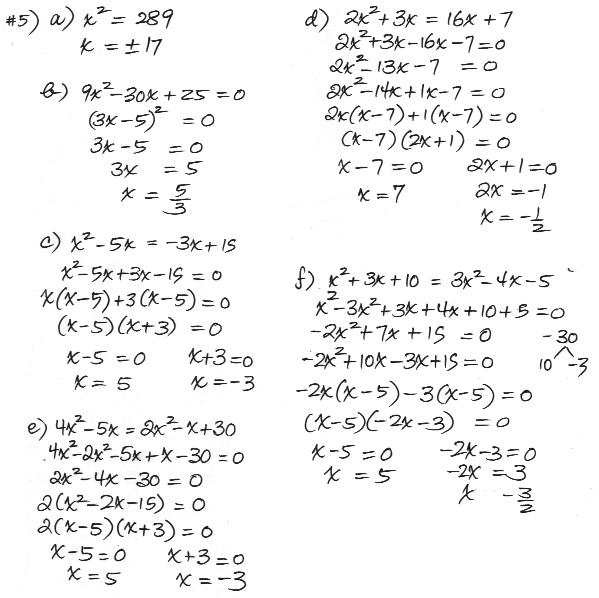 #5) a) x² = 289
x = ±17
b) 9x² - 30x + 25 = 0
(3x - 5)² = 0
3x - 5 = 0
3x = 5
x = 5/3
c) x² - 5x = -3x + 15
x² - 5x + 3x - 15 = 0
x(x - 5) + 3(x - 5) = 0
(x - 5)(x + 3) = 0
x - 5 = 0 x + 3 = 0
x = 5 x = -3
e) 4x² - 5x = 2x² - x + 30
4x² - 2x² - 5x + x - 30 = 0
2x² - 4x - 30 = 0
2(x² - 2x - 15) = 0
2(x - 5)(x + 3) = 0
x - 5 = 0 x + 3 = 0
x = 5 x = -3
d) 2x² + 3x = 16x + 7
2x² + 3x - 16x - 7 = 0
2x² - 13x - 7 = 0
2x² - 14x + 1x - 7 = 0
2x(x - 7) + 1(x - 7) = 0
(x - 7)(2x + 1) = 0
x - 7 = 0 2x + 1 = 0
x = 7 2x = -1
x = -1/2
f) x² + 3x + 10 = 3x² - 4x - 5
x² - 3x² + 3x + 4x + 10 + 5 = 0
-2x² + 7x + 15 = 0 -30
-2x² + 10x - 3x + 15 = 0 10 -3
-2x(x - 5) - 3(x - 5) = 0
(x - 5)(-2x - 3) = 0
x - 5 = 0 -2x - 3 = 0
x = 5 -2x = 3
x -3/2